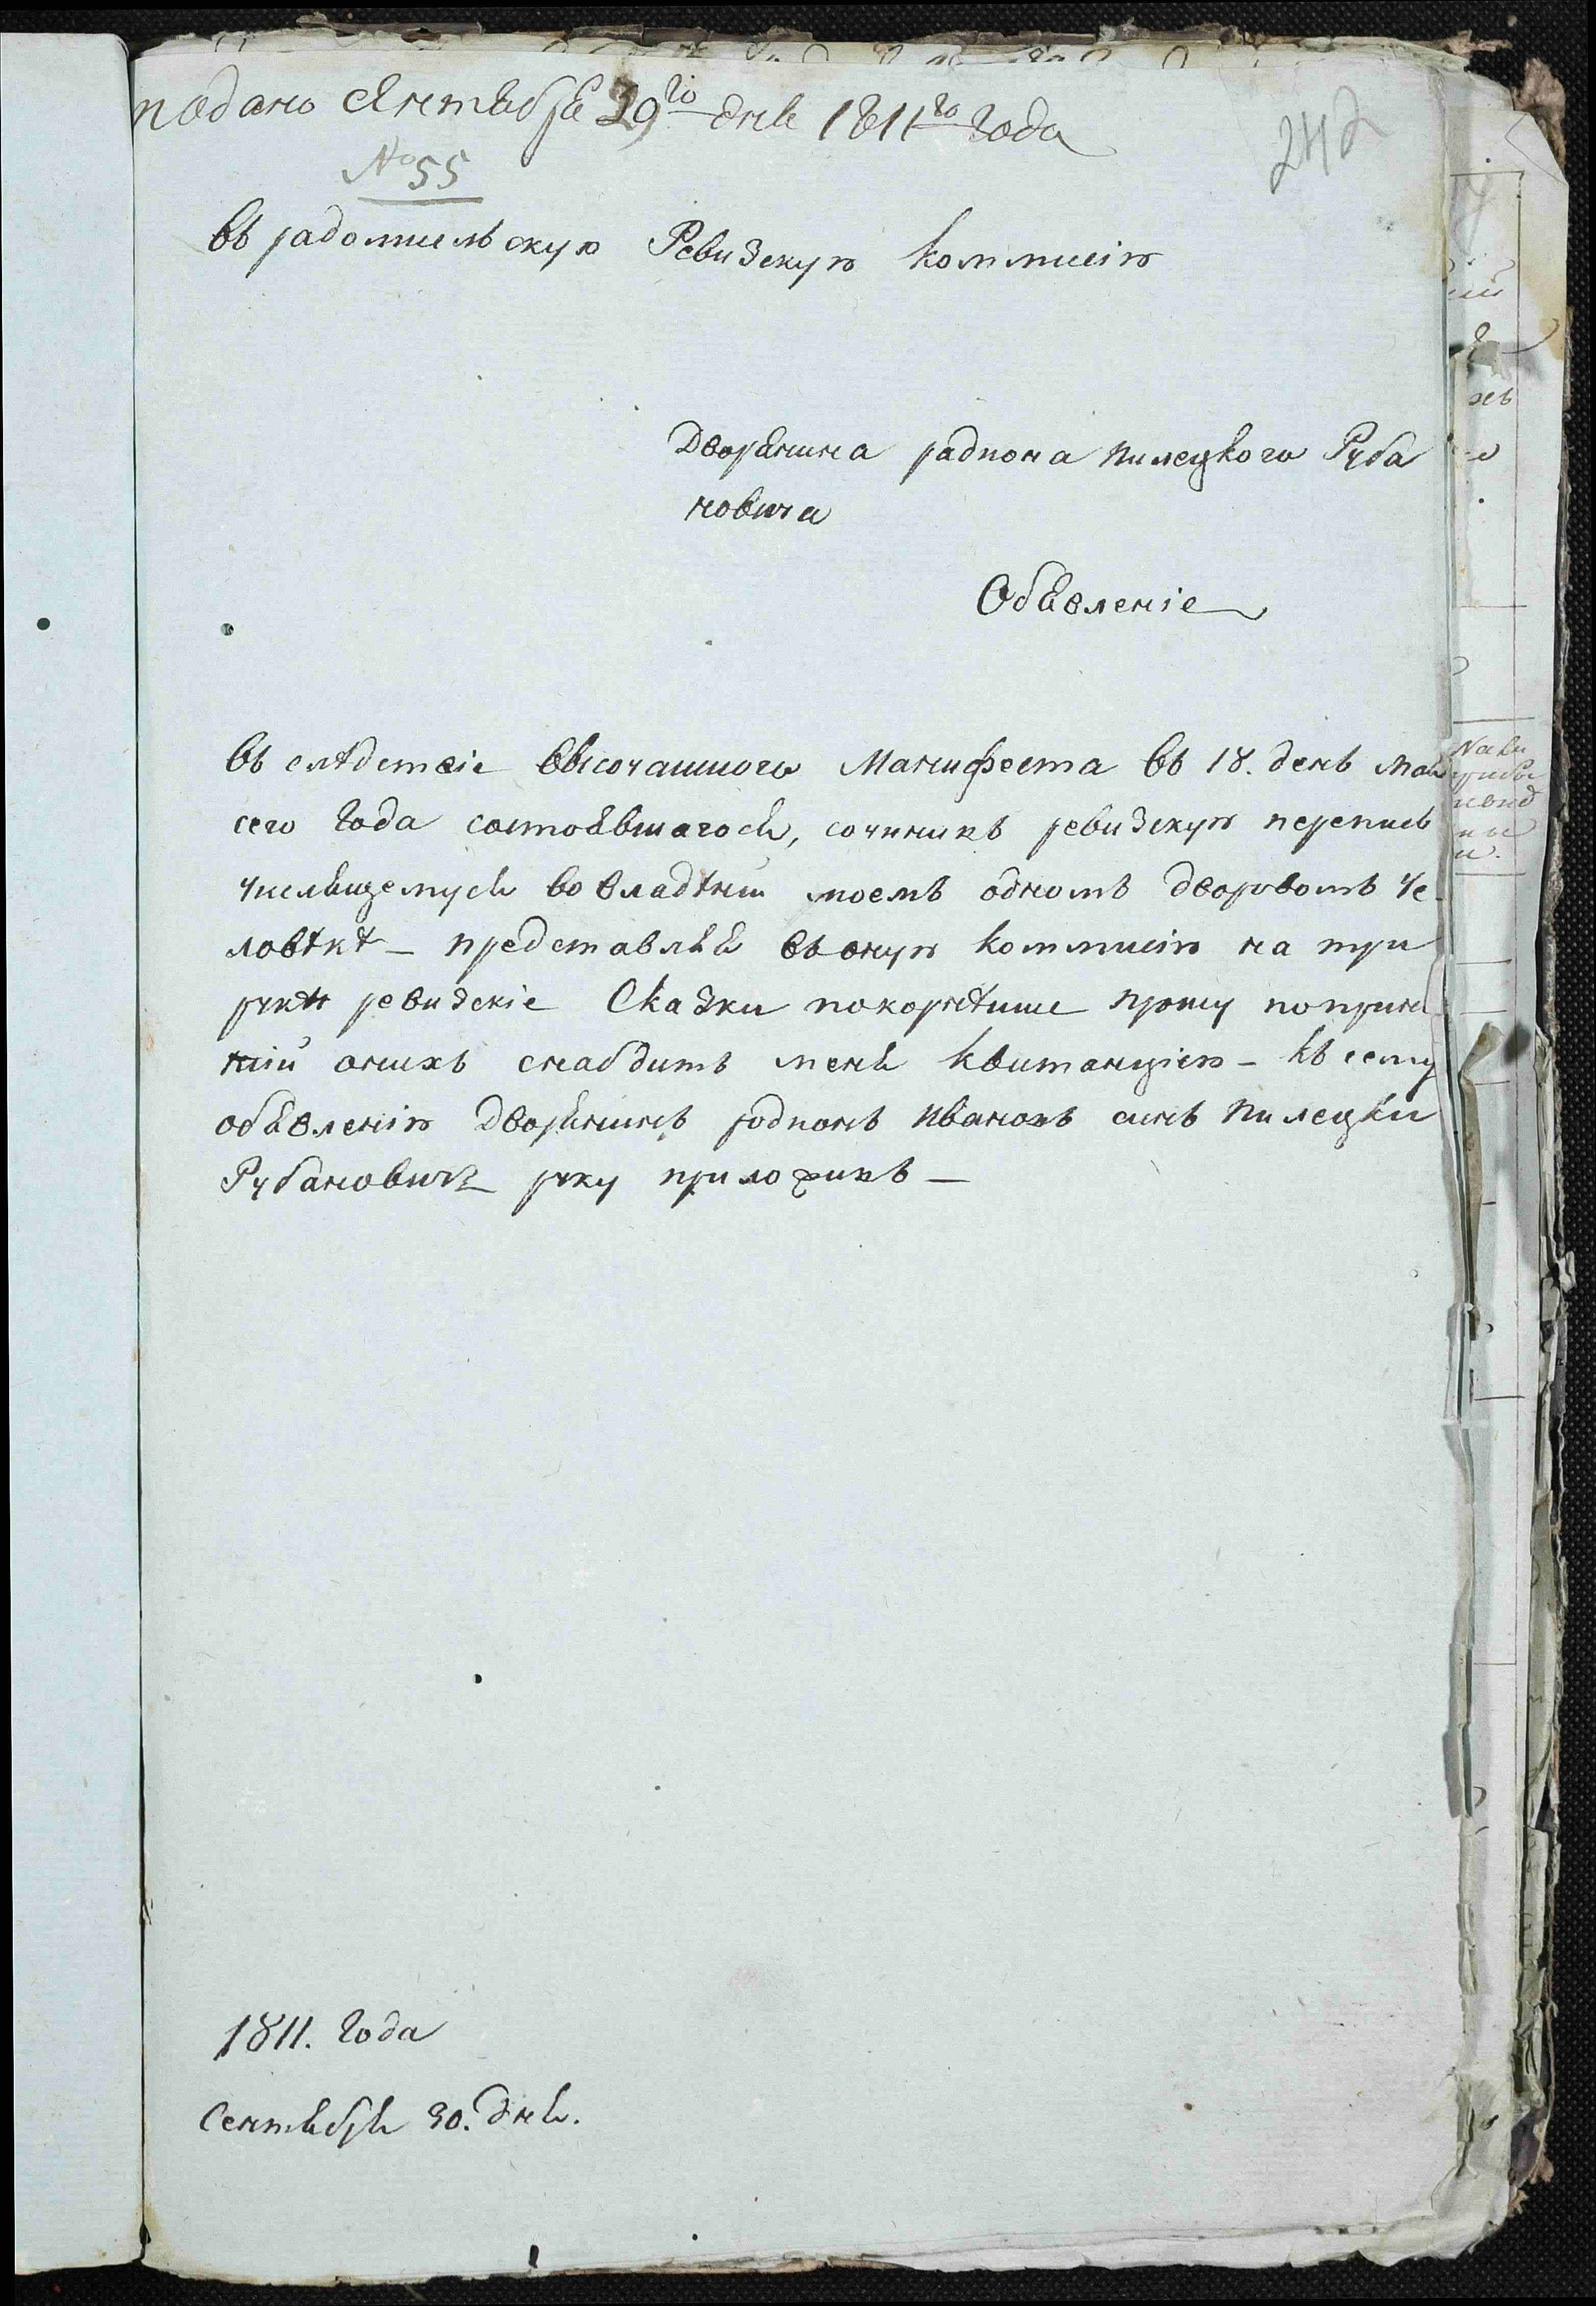 подано сентября 29го дня 1811го года
242
№ 55
въ радомисльскую Ревизскую коммисію
Дворянина радиона Пилецкого Руба
новича
Обявленіе
въ слѣдствіе высочашшого Манифеста въ 18. день мая
сего года состоявшагося, сочинивъ ревизскую перепись
числящемуся во владѣніи моемъ одномъ дворовомъ че-
ловѣкѣ – представляя въ оную коммисію на три
рукѣ ревизскіе Сказки покорнѣише прошу по приня
тіи оныхъ снабдить меня квитанціею – къ сему
обявленію Дворянинъ родионъ Ивановъ синъ Пилецки
Рубановичъ руку приложивъ –
1811. года
Сентября 30. дня.